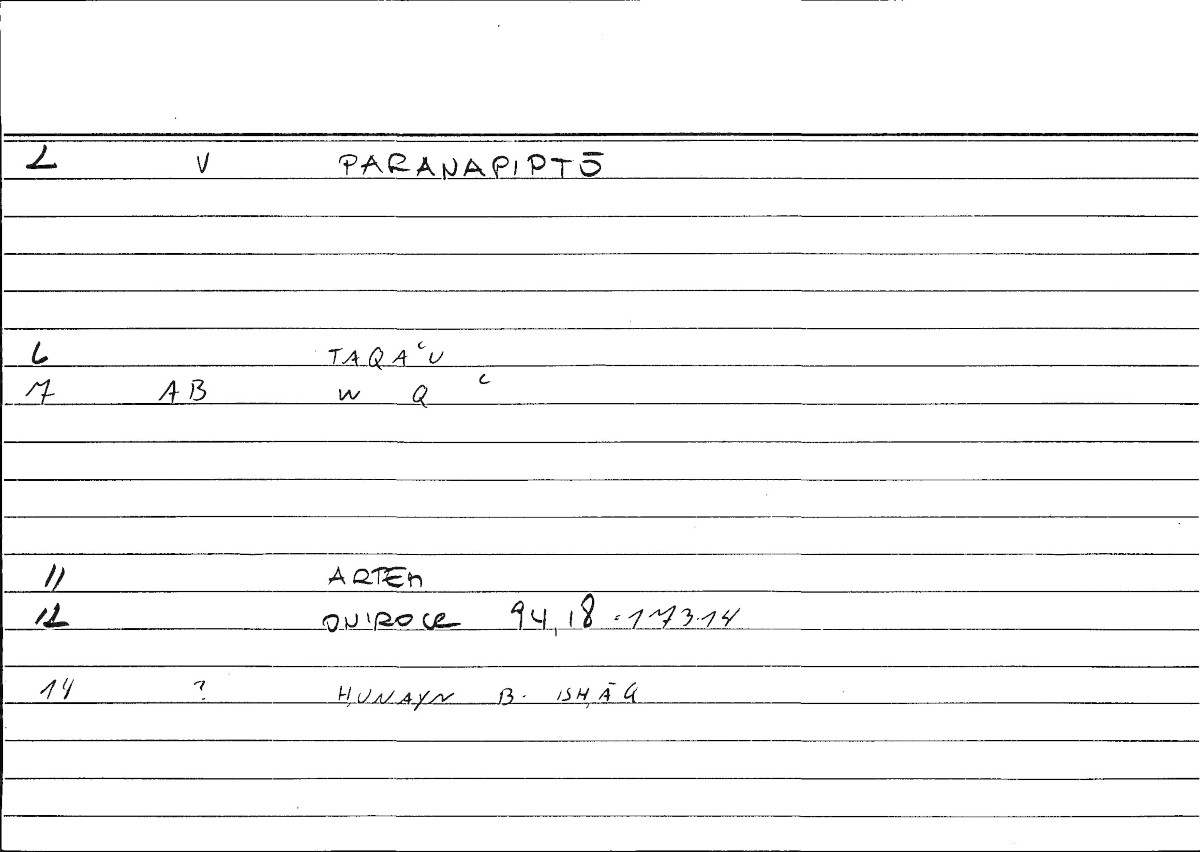 2 V PARANAPIPTŌ
6 TAQAʿU
7 AB W Q ʿ
11 ARTEM
12 ONIROCR 94,18 : 173.14
14 ? ḤUNAYN B. ISḤĀQ